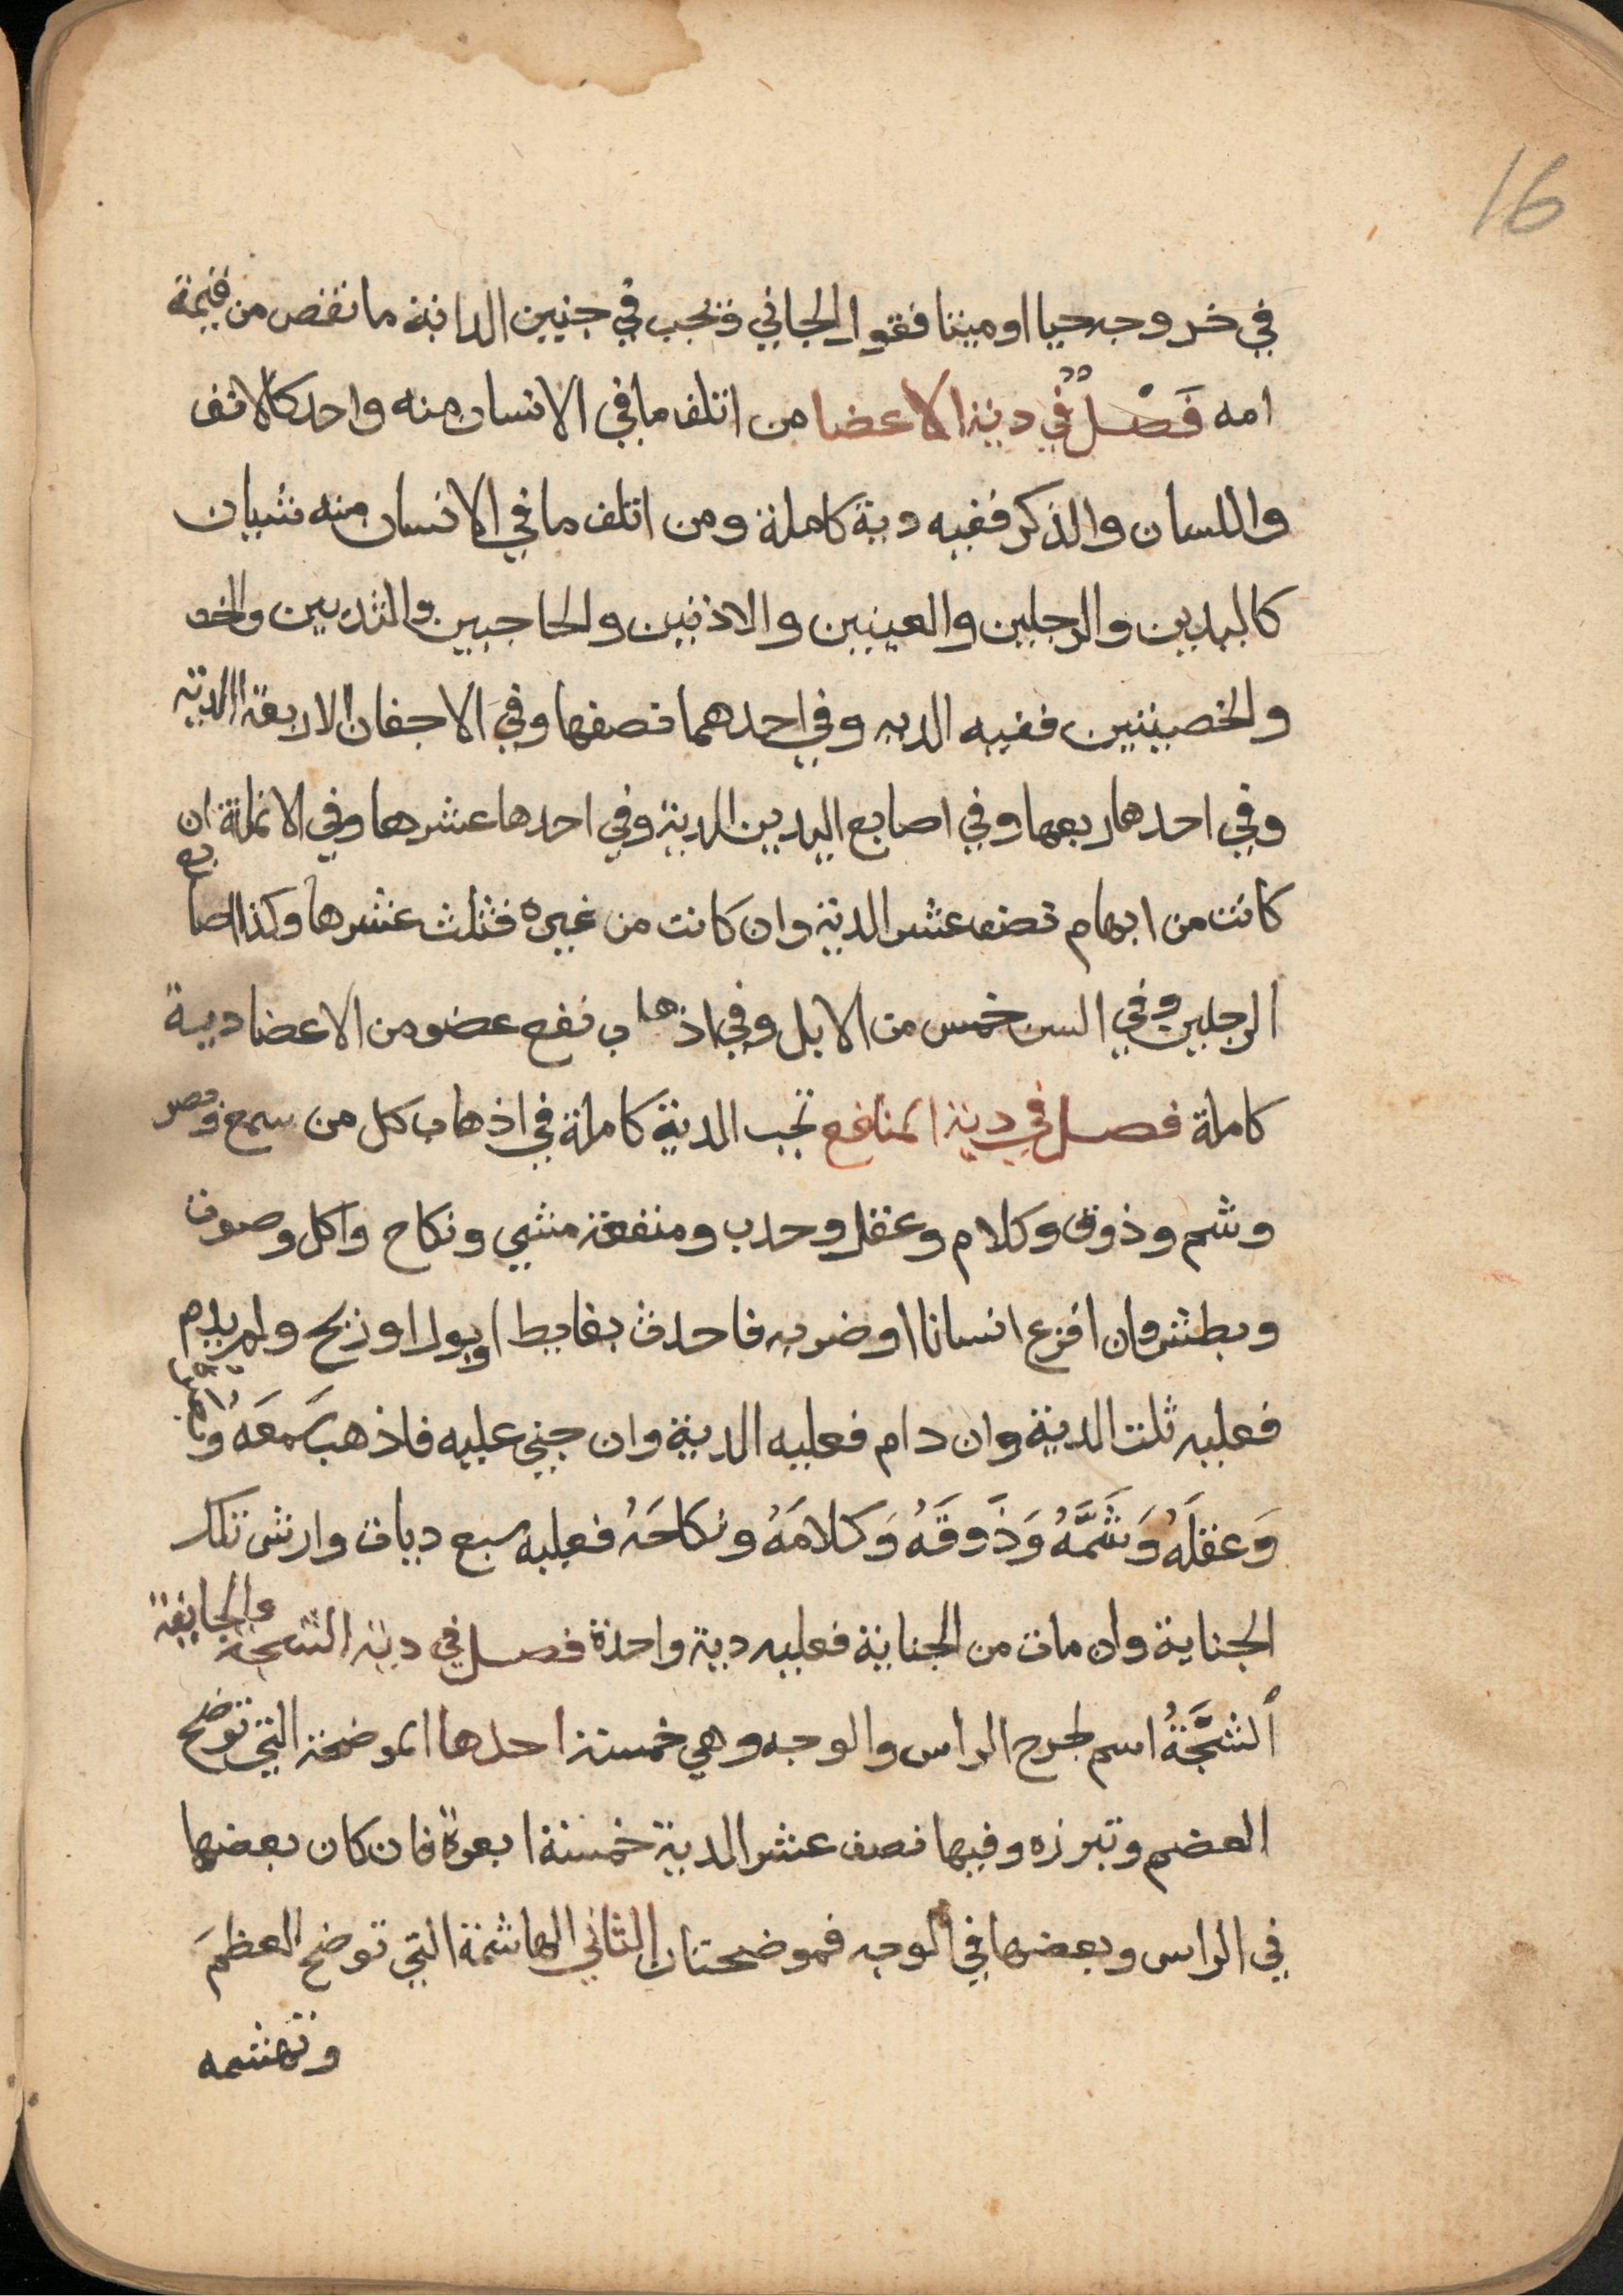 16
في خروجه حيا او ميتا فقول الجاني وتجب في جنين الدابة ما نقص من قيمة
امه فَصْلٌ في دية الاعضا من اتلف ما في الانسان منه واحد كالانف
واللسان والذكر ففيه دية كاملة ومن اتلف ما في الانسان منه شيان
كاليدين والرجلين والعينين والاذنين والحاجبين والثديين
والخصيتين ففيه الديه وفي احدهما نصفها وفي الاجفان الاربعة الدية
وفي احدها ربعها وفي اصابع اليدين الدية وفي احدها عشرها وفي الانملة ان
كانت من ابهام نصف عشر الدية وان كانت من غيره فثلث عشرها وكذا اصابع
الرجلين وفي السن خمس من الابل وفي اذهاب نفع عضو من الاعضا دية
كاملة فصل في دية المنافع تجب الدية كاملة في اذهاب كل من سمع وبصر
وشم وذوق وكلام وعقل وحدب ومنفعة مشي ونكاح واكل وصوت
وبطش وان افزع انسانا او ضربه فاحدث بغايط او بول او ريح ولم يدم
فعليه ثلث الدية وان دام فعليه الدية وان جني عليه فاذهب سَمعَه وبصره
وَعقلَهُ وَشَمَّهُ وَذَوقَهُ وَكلامَهُ ونكاحَهُ فعليه سبع ديات وارش تلك
الجناية وان مات من الجناية فعليه دية واحدة فصل في دية الشجة والجايفة
ألشَّجَّةُ اسم لجرح الراس والوجه وهي خمسة احدها الموضحة التي توضح
العضم وتبرزه وفيها نصف عشر الدية خمسة ابعرة فان كان بعضها
في الراس وبعضها في الوجه فموضحتان الثاني الهاشمة التي توضح العظمَ
وتهشمه